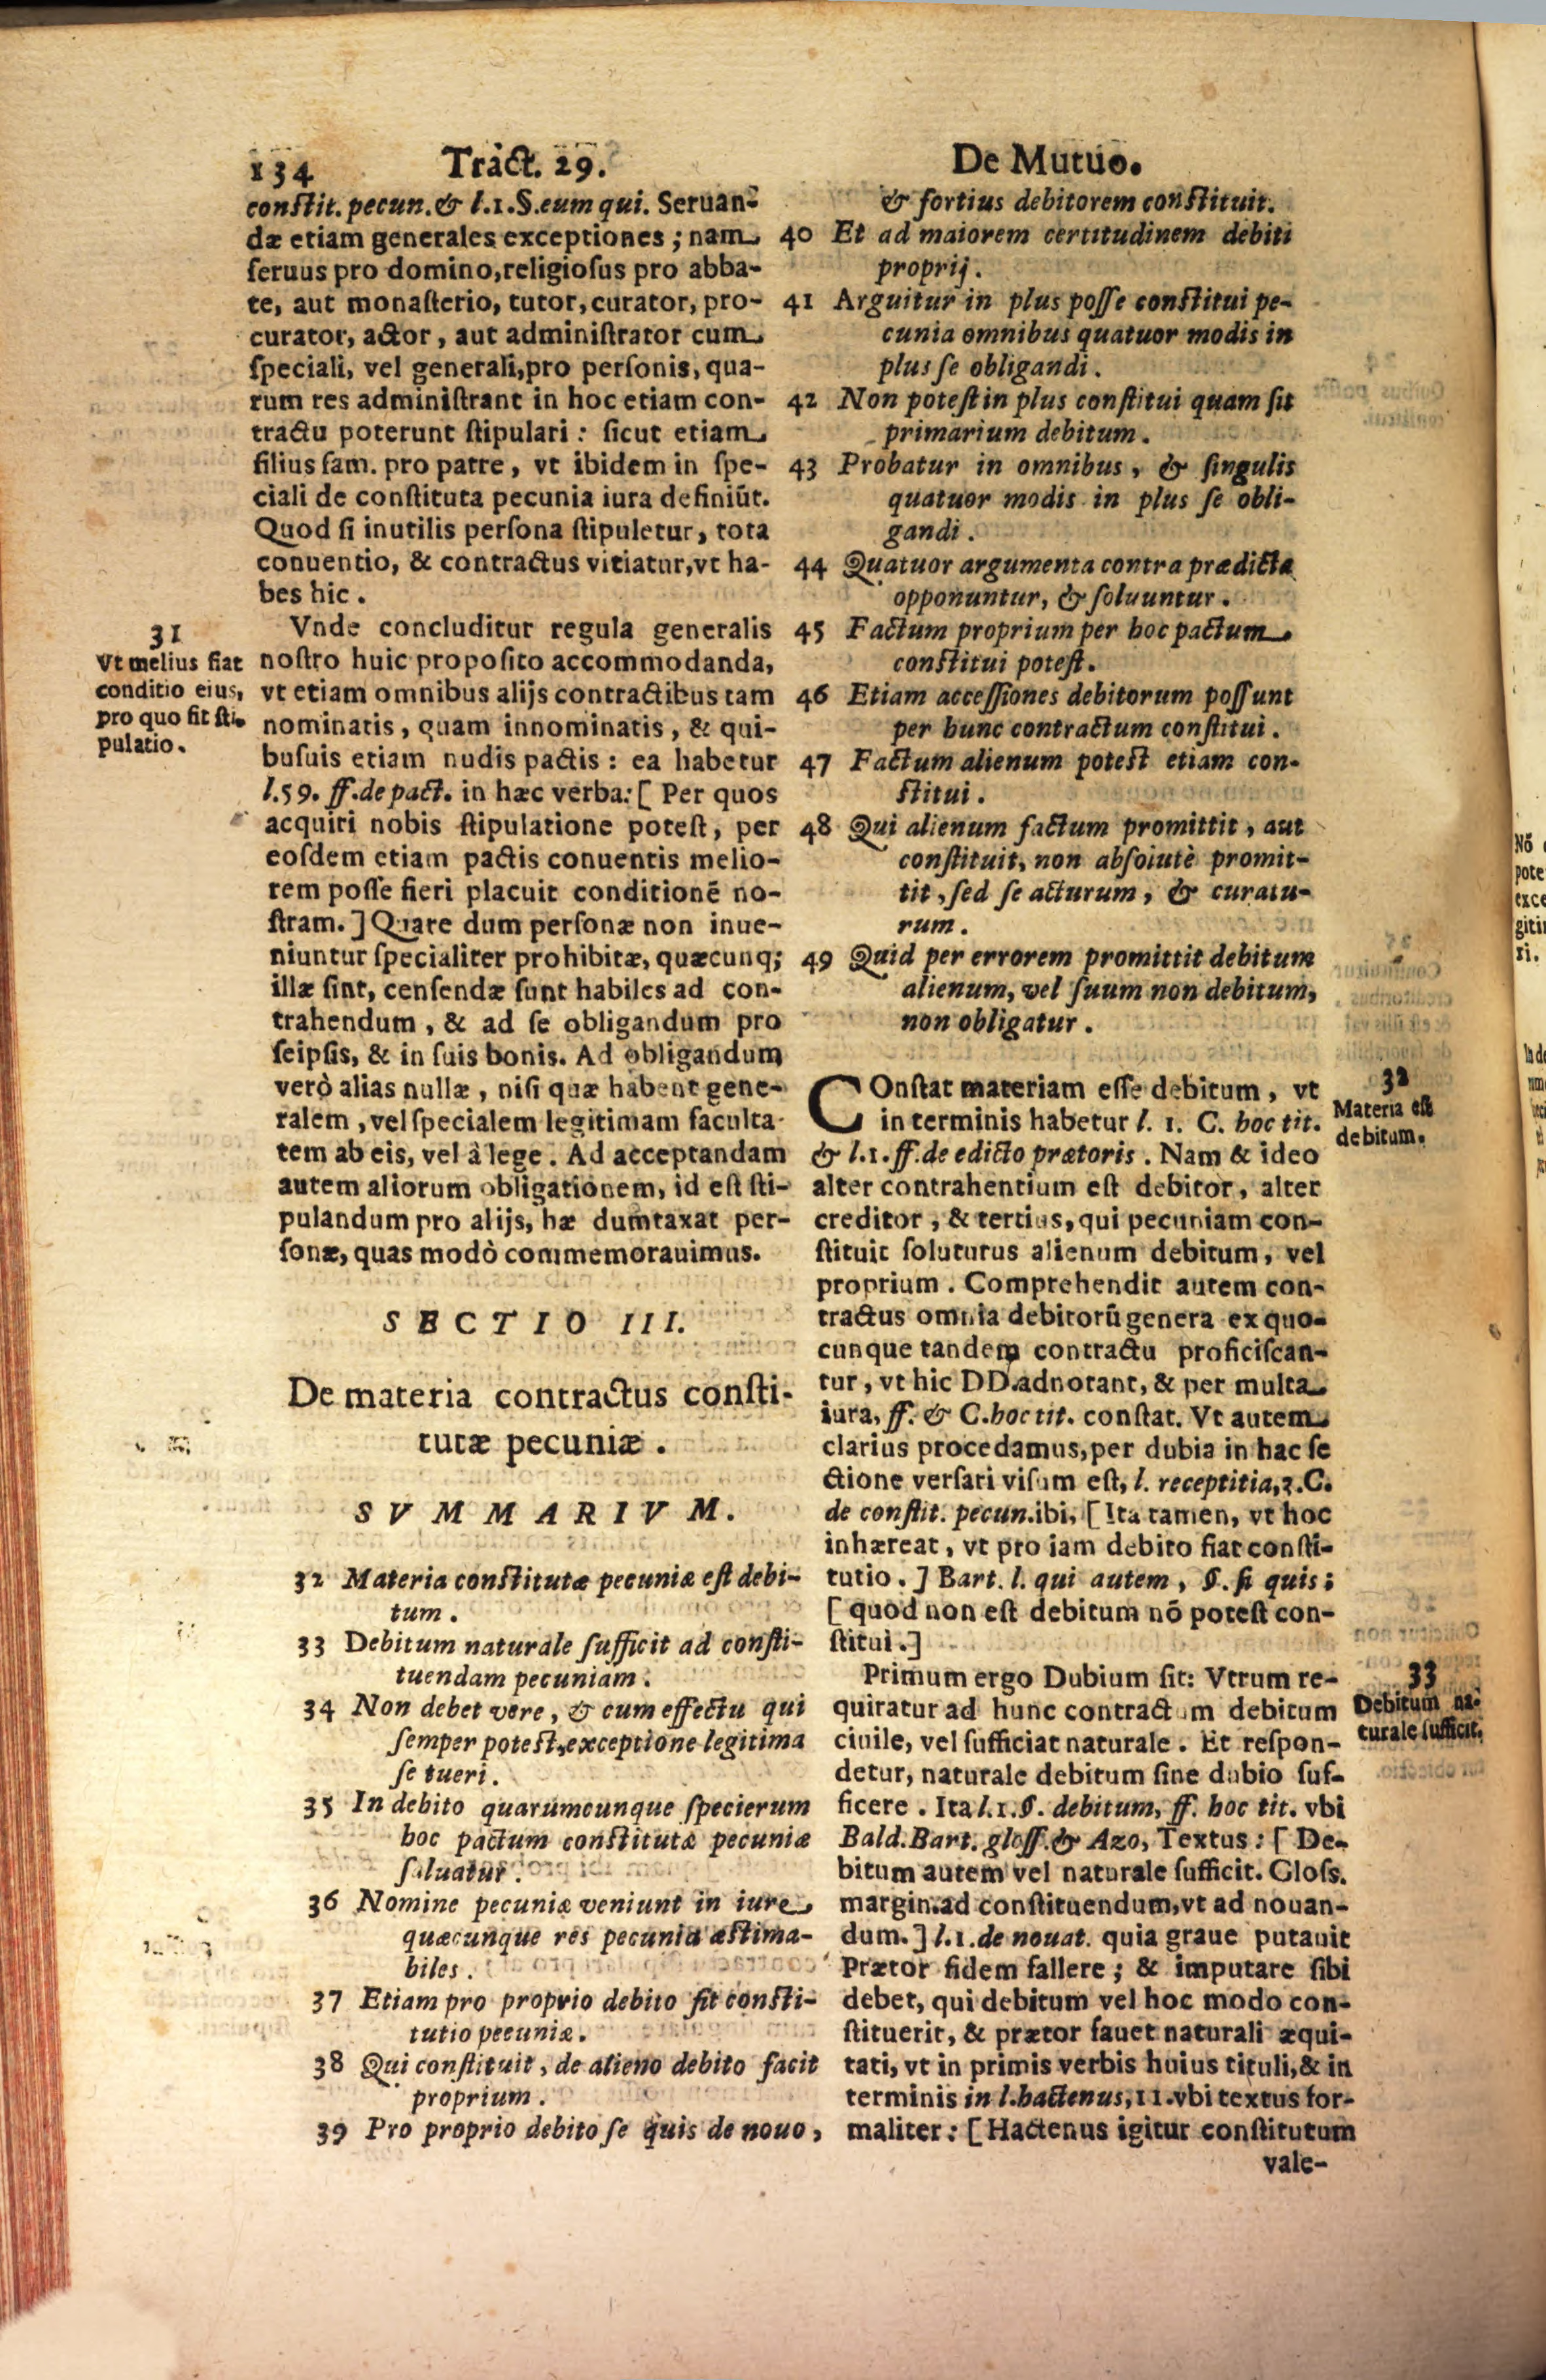 134 Tract. 29. De Mutuo.
constit. pecun. & l.1.§.eum qui. Seruan-
dæ etiam generales exceptiones; nam
ſeruus pro domino, religioſus pro abba-
te, aut monaſterio, tutor, curator, pro-
curator, actor, aut adminiſtrator cum
ſpeciali, vel generali, pro perſonis, qua-
rum res adminiſtrant in hoc etiam con-
tractu poterunt ſtipulari: ſicut etiam
filius fam. pro patre, vt ibidem in ſpe-
ciali de conſtituta pecunia iura definiūt.
Quod ſi inutilis perſona ſtipuletur, tota
conuentio, & contractus vitiatur, vt ha-
bes hic.
31
Vt melius fiat
conditio eius,
pro quo fit ſti-
pulatio.
Vnde concluditur regula generalis
noſtro huic propoſito accommodanda,
vt etiam omnibus alijs contractibus tam
nominatis, quam innominatis, & qui-
buſuis etiam nudis pactis: ea habetur
l.59. ff.de pact. in hæc verba: [ Per quos
acquiri nobis ſtipulatione poteſt, per
eoſdem etiam pactis conuentis melio-
rem poſſe fieri placuit conditionē no-
ſtram. ] Quare dum perſonæ non inue-
niuntur ſpecialiter prohibitæ, quæcunq;
illæ ſint, cenſendæ ſunt habiles ad con-
trahendum, & ad ſe obligandum pro
ſeipſis, & in ſuis bonis. Ad obligandum
verò alias nullæ, niſi quæ habent gene-
ralem, vel ſpecialem legitimam faculta-
tem ab eis, vel à lege. Ad acceptandam
autem aliorum obligationem, id eſt ſti-
pulandum pro alijs, hæ dumtaxat per-
ſonæ, quas modò commemorauimus.
SECTIO III.
De materia contractus conſti-
tutæ pecuniæ.
SVMMARIVM.
32 Materia conſtitutæ pecuniæ eſt debi-
tum.
33 Debitum naturale ſufficit ad conſti-
tuendam pecuniam.
34 Non debet vere, & cum effectu qui
ſemper poteſt, exceptione legitima
ſe tueri.
35 In debito quarumcunque ſpecierum
hoc pactum conſtitutæ pecuniæ
ſaluatur.
36 Nomine pecuniæ veniunt in iure
quæcunque res pecunia æſtima-
biles.
37 Etiam pro proprio debito fit conſti-
tutio pecuniæ.
38 Qui conſtituit, de alieno debito facit
proprium.
39 Pro proprio debito ſe quis de nouo,
& fortius debitorem conſtituit.
40 Et ad maiorem certitudinem debiti
proprij.
41 Arguitur in plus poſſe conſtitui pe-
cunia omnibus quatuor modis in
plus ſe obligandi.
42 Non poteſt in plus conſtitui quam ſit
primarium debitum.
43 Probatur in omnibus, & ſingulis
quatuor modis in plus ſe obli-
gandi.
44 Quatuor argumenta contra prædicta
opponuntur, & ſoluuntur.
45 Factum proprium per hoc pactum
conſtitui poteſt.
46 Etiam acceſſiones debitorum poſſunt
per hunc contractum conſtitui.
47 Factum alienum poteſt etiam con-
ſtitui.
48 Qui alienum factum promittit, aut
conſtituit, non abſolutè promit-
tit, ſed ſe acturum, & curatu-
rum.
49 Quid per errorem promittit debitum
alienum, vel ſuum non debitum,
non obligatur.
COnſtat materiam eſſe debitum, vt
in terminis habetur l. 1. C. hoc tit.
& l.1.ff.de edicto prætoris. Nam & ideo
alter contrahentium eſt debitor, alter
creditor, & tertius, qui pecuniam con-
ſtituit ſoluturus alienum debitum, vel
proprium. Comprehendit autem con-
tractus omnia debitorū genera ex quo-
cunque tandem contractu proficiſcan-
tur, vt hic DD.adnotant, & per multa
iura, ff. & C.hoc tit. conſtat. Vt autem
clarius procedamus, per dubia in hac ſe
ctione verſari viſum eſt, l. receptitia,2.C.
de conſtit. pecun.ibi, [ Ita tamen, vt hoc
inhæreat, vt pro iam debito fiat conſti-
tutio. ] Bart. l. qui autem, §. ſi quis;
[ quod non eſt debitum nō poteſt con-
ſtitui.]
32
Materia eſt
debitum.
Primum ergo Dubium ſit: Vtrum re-
quiratur ad hunc contractum debitum
ciuile, vel ſufficiat naturale. Et reſpon-
detur, naturale debitum ſine dubio ſuf-
ficere. Ita l.1.§. debitum, ff. hoc tit. vbi
Bald.Bart.gloſſ.& Azo, Textus: [ De-
bitum autem vel naturale ſufficit. Gloſs.
margin.ad conſtituendum, vt ad nouan-
dum. ] l.1.de nouat. quia graue putauit
Prætor fidem fallere; & imputare ſibi
debet, qui debitum vel hoc modo con-
ſtituerit, & prætor fauet naturali æqui-
tati, vt in primis verbis huius tituli, & in
terminis in l.hactenus,11.vbi textus for-
maliter: [ Hactenus igitur conſtitutum
vale-
33
Debitum na-
turale ſufficit.